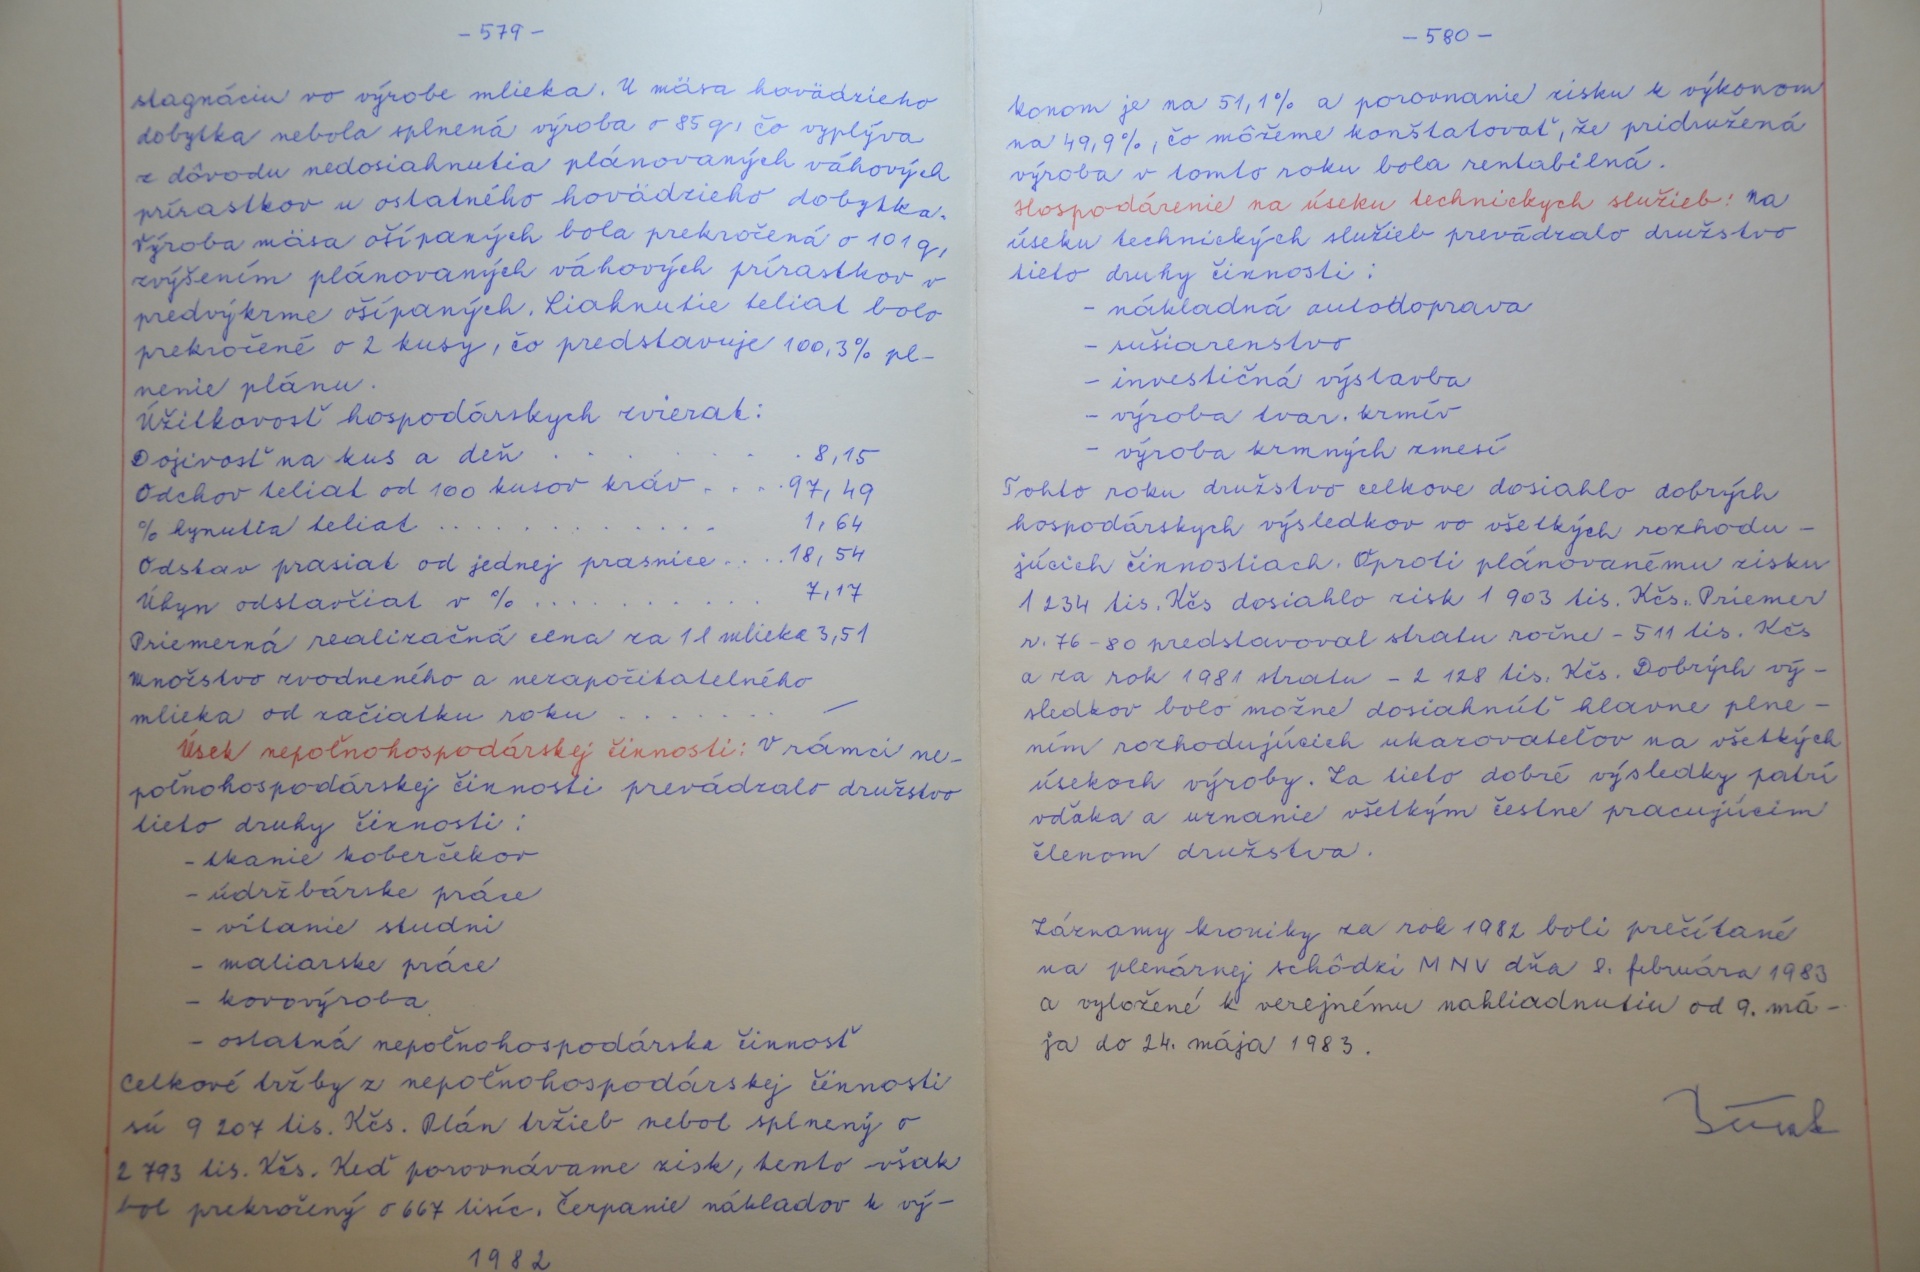 - 579 -
stagnáciu vo výrobe mlieka. U mäsa hovädzieho
dobytka nebola splnená výroba o 85 q, čo vyplýva
z dôvodu nedosiahnutia plánovaných váhových
prírastkov u ostatného hovädzieho dobytka.
Výroba mäsa ošípaných bola prekročená o 101 q,
zvýšením plánovaných váhových prírastkov v
predvýkrme ošípaných. Liahnutie teliat bolo
prekročené o 2 kusy, čo predstavuje 100,3% pl-
nenie plánu.
Úžitkovosť hospodárskych zvierat:
Dojivosť na kus a deň . . . . . . 8,15
Odchov teliat od 100 kusov kráv . . . . 97,49
% hynutia teliat . . . . . . . . . . . . . 1,64
Odstav prasiat od jednej prasnice . . . . 18,54
Úhyn odstavčiat v % . . . . . . . . . . . 7,17
Priemerná realizačná cena za 1 l mlieka 3,51
množstvo zvodneného a nezapočítatelného
mlieka od začiatku roku . . . . . . . —
Úsek nepoľnohospodárskej činnosti: V rámci ne-
poľnohospodárskej činnosti prevádzalo družstvo
tieto druhy činnosti:
- tkanie koberčekov
- údržbárske práce
- vŕtanie studni
- maliarske práce
- kovovýroba
- ostatná nepoľnohospodárska činnosť
Celkové tržby z nepoľnohospodárskej činnosti
sú 9 207 tis. Kčs. Plán tržieb nebol splnený o
2 793 tis. Kčs. Keď porovnávame zisk, tento však
bol prekročený o 667 tisíc. Čerpanie nákladov k vý-
1982
- 580 -
konom je na 51,1% a porovnanie zisku k výkonom
na 49,9%, čo môžeme konštatovať, že pridružená
výroba v tomto roku bola rentabilná.
Hospodárenie na úseku technickych služieb: Na
úseku technických služieb prevádzalo družstvo
tieto druhy činnosti:
- nákladná autodoprava
- sušiarenstvo
- investičná výstavba
- výroba tvar. krmív
- výroba krmných zmesí
Tohto roku družstvo celkove dosiahlo dobrých
hospodárskych výsledkov vo všetkých rozhodu-
júcich činnostiach. Oproti plánovanému zisku
1 234 tis. Kčs dosiahlo zisk 1 903 tis. Kčs. Priemer
r. 76-80 predstavoval stratu ročne - 511 tis. Kčs
a za rok 1981 stratu - 2 128 tis. Kčs. Dobrých vý-
sledkov bolo možne dosiahnúť hlavne plne-
ním rozhodujúcich ukazovateľov na všetkých
úsekoch výroby. Za tieto dobré výsledky patrí
vďaka a uznanie všetkým čestne pracujúcim
členom družstva.
Záznamy kroniky za rok 1982 boli prečítané
na plenárnej schôdzi MNV dňa 8. februára 1983
a vyložené k verejnému nahliadnutiu od 9. má-
ja do 24. mája 1983.